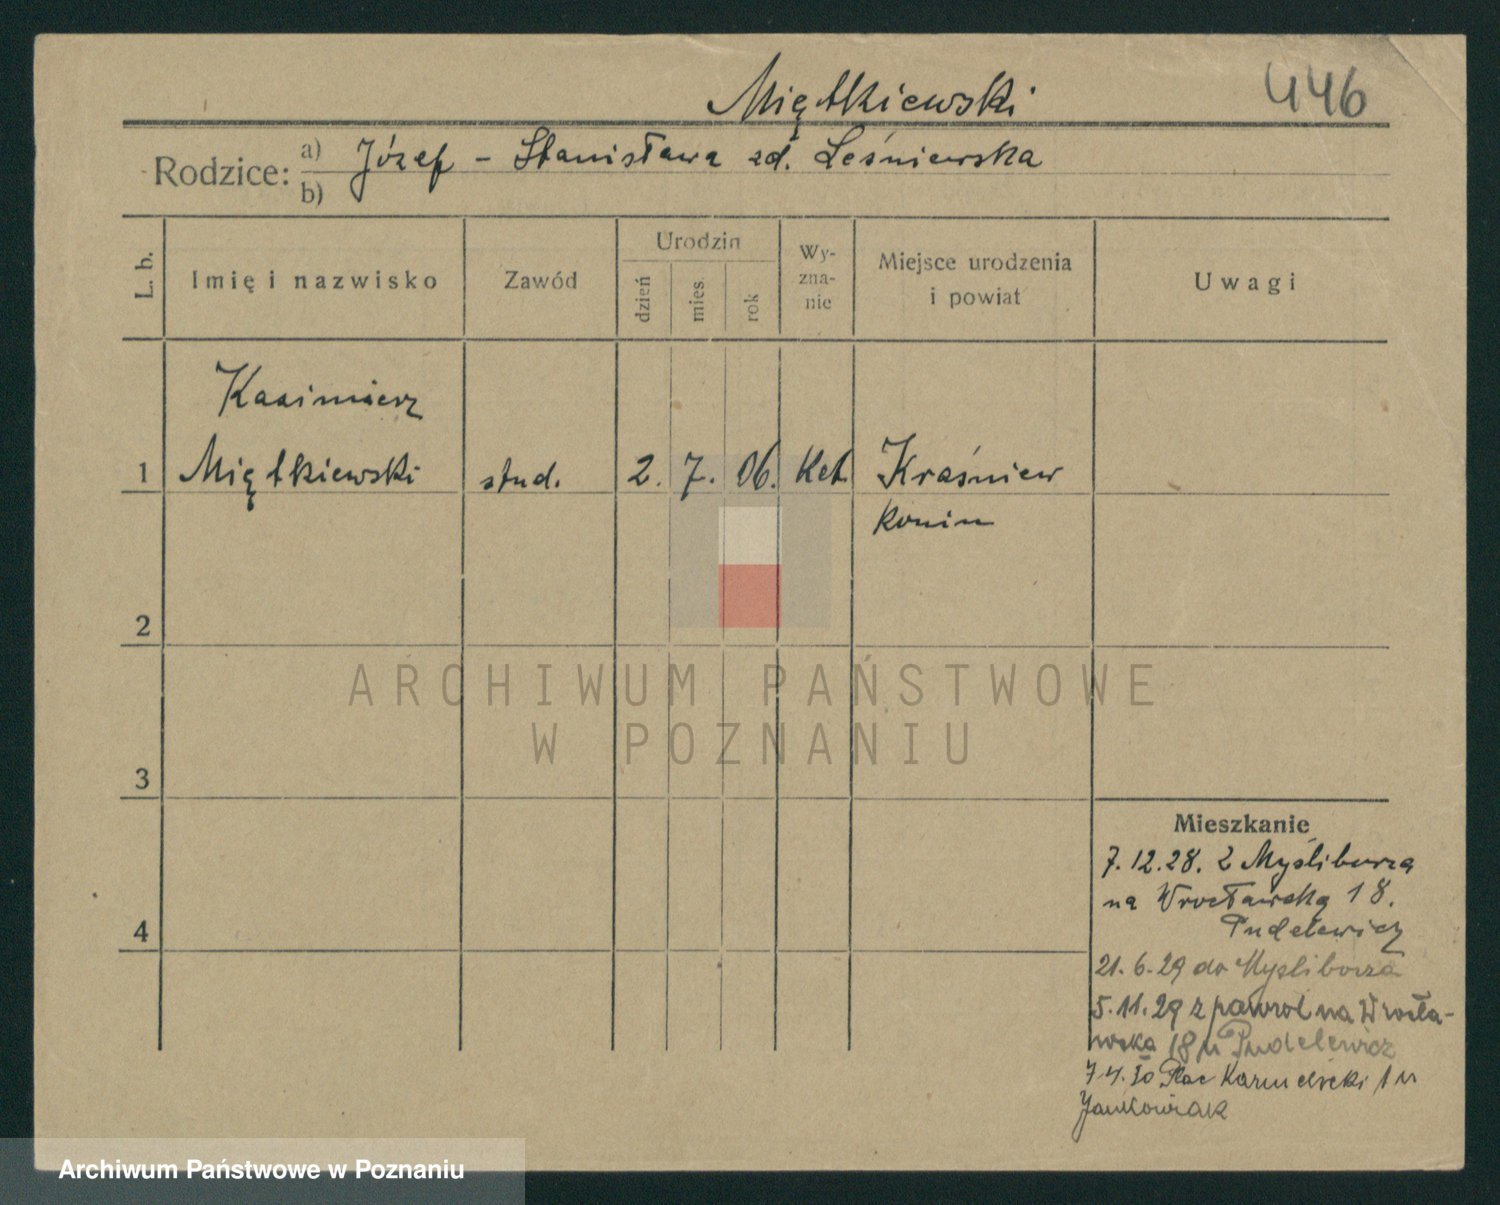 Miętkiewski
446
Rodzice: a) Józef - Stanisława zd. Leśniewska
b)
L. b.
Imię i nazwisko
Zawód
Urodzin
dzień
mies.
rok
Wy-
zna-
nie
Miejsce urodzenia
i powiat
Uwagi
Kazimierz
1 Miętkiewski stud. 2. 7. 06. Kat. Kraśniew
Konin
2
ARCHIWUM PAŃSTWOWE
W POZNANIU
3
Mieszkanie
7.12.28. z Myśliborza
na Wrocławską 18.
Pudelewicz
4
21.6.29 do Myśliborza
5.11.29 z powrot na Wrocła-
wska 18 u Pudelewicz
7.4.30 Plac Karmelicki 1 u
Jankowiak
Archiwum Państwowe w Poznaniu